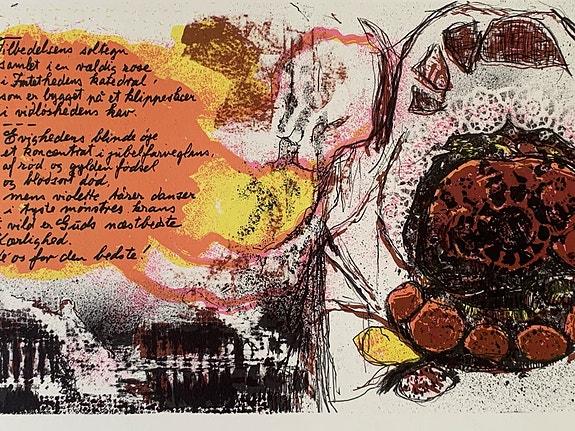 Tilbedelsens soltegn
samlet i en vældig rose
i Intethedens katedral,
som en bygget på et klippeskær
i vidløshedens hav.
- - -
Evighedens blinde øje
et koncentrat i jubelfarveglans,
af rød og gylden fødsel
og blodsort død,
mem violette kårer danser
i tyste mønstres krans
vild er Guds næstbedste
Kærlighed.
os for den bedste!